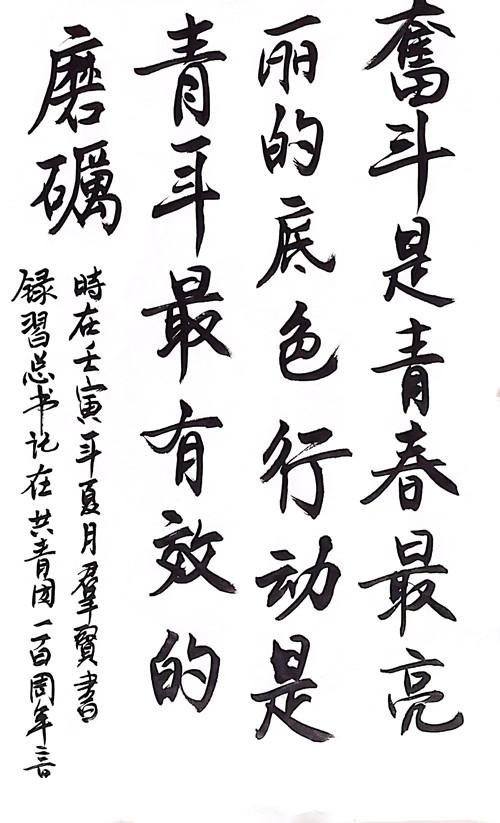 奮斗是青春最亮
丽的底色行动是
青年最有效的
磨礪
時在壬寅年夏月羣賢書
録習总书记在共青团一百周年言